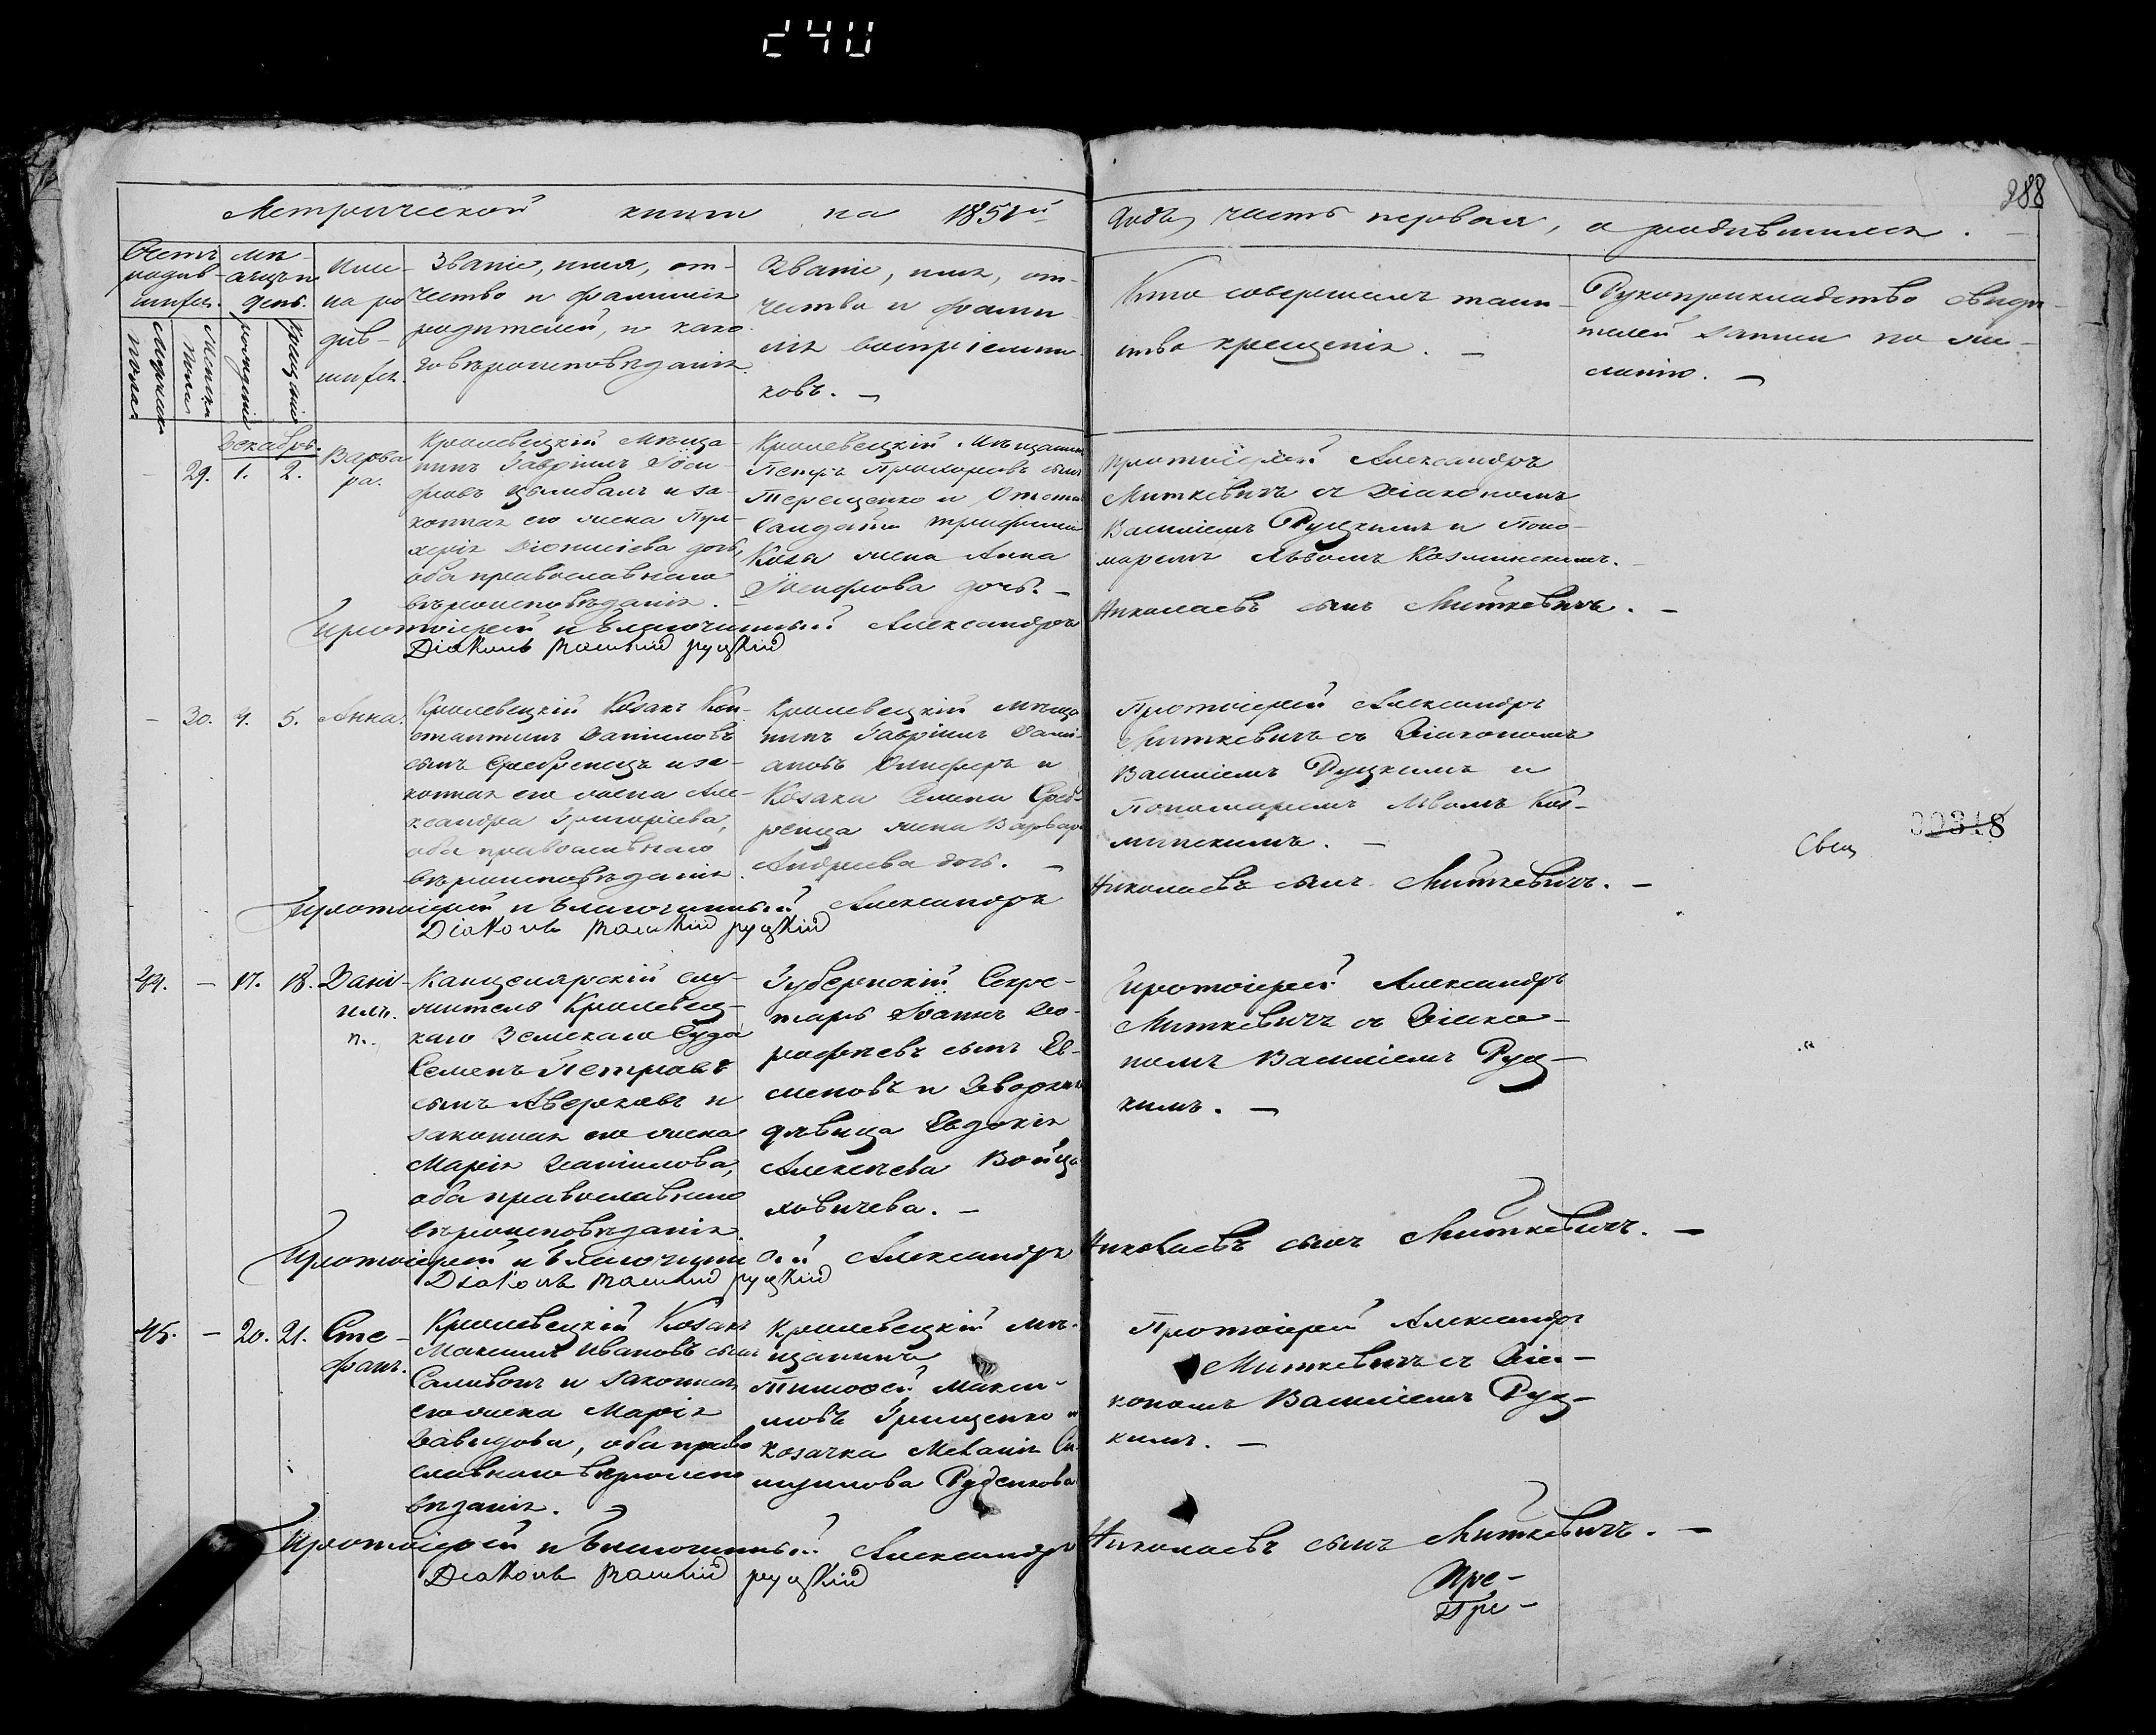 240
288
Метрической книги на 1851й годъ, часть первая, о родившихся.
Счетъ родив-
шихся.
Мужеска
пола.
Женска
пола.
Мѣ-
сяцъ и
день.
рожденія
крещенія
Име-
на ро
див-
шихся.
Званіе, имя, от-
чество и фамилія
родителей, и како-
го вѣроисповѣданія.
Званіе, имя, от-
чество и фами-
лія воспріемни-
ковъ. —
Кто совершалъ таин-
ство крещенія. —
Рукоприкладство свидѣ-
телей записи по же-
ланію. —
Декабрь.
29. 1. 2.
Варва
ра.
Кролевецкій Мѣща-
нинъ Гавріилъ Іоси-
фовъ Цымбалъ и за-
конная его жена Пул-
херія Діонисіева дочь,
оба православнаго
вѣроисповѣданія. —
Кролевецкій Мѣщанинъ
Петръ Прохоровъ сынъ
Терещенко и
жена Анна
Іосифова дочь. —
Протоіерей Александръ
Миткевичъ съ Діакономъ
Василіемъ Руцкимъ и Поно-
маремъ Львомъ Козминскимъ.
Протоіерей и Благочинный Александръ Николаевъ сынъ Миткевичъ. —
Діаконъ Василій Руцкій
— 30. 4. 5. Анна.
Кролевецкій Козакъ Кон-
стантинъ Даниловъ
сынъ Сребрницъ и за-
конная его жена Але-
ксандра Григоріева,
оба православнаго
вѣроисповѣданія.
Кролевецкій Мѣща
нинъ Гавріилъ
и
Козака Семена
жена Варвара
Андреева дочь. —
Протоіерей Александръ
Миткевичъ съ Діакономъ
Василіемъ Руцкимъ и
Пономаремъ Львомъ Коз-
минскимъ. —
Свящ
00318
Протоіерей и Благочинный Александръ Николаевъ сынъ Миткевичъ. —
Діаконъ Василій Руцкій
44. — 17. 18.
Дані-
илъ.
Канцелярскій слу-
житель Кролевец-
каго Земскаго Суда
Семенъ Петровъ
сынъ Аверковъ и
законная его жена
Марія Даніилова,
оба православнаго
вѣроисповѣданія.
Губернскій Секре-
тарь Іоаннъ До-
рофеевъ сынъ Ев-
сменовъ и Дворянка
дѣвица Евдокія
Алексѣева Войце
ховичева. —
Протоіерей Александръ
Миткевичъ съ Діако-
номъ Василіемъ Руц-
кимъ. —
Протоіерей и Благочинный Александръ Николаевъ сынъ Миткевичъ. —
Діаконъ Василій Руцкій
45. — 20. 21.
Сте-
фанъ.
Кролевецкій Козакъ
Максимъ Ивановъ сынъ
Саливонъ и законная
его жена Марія
Давидова, оба право
славнаго вѣроиспо
вѣданія.
Кролевецкій Мѣ-
щанинъ
Тимофей Макси-
мовъ Грищенко и
козачка Меланія
Руденкова
Протоіерей Александръ
Миткевичъ съ Діа-
кономъ Василіемъ Руц-
кимъ. —
Протоіерей и Благочинный Александръ Николаевъ сынъ Миткевичъ. —
Діаконъ Василій Руцкій